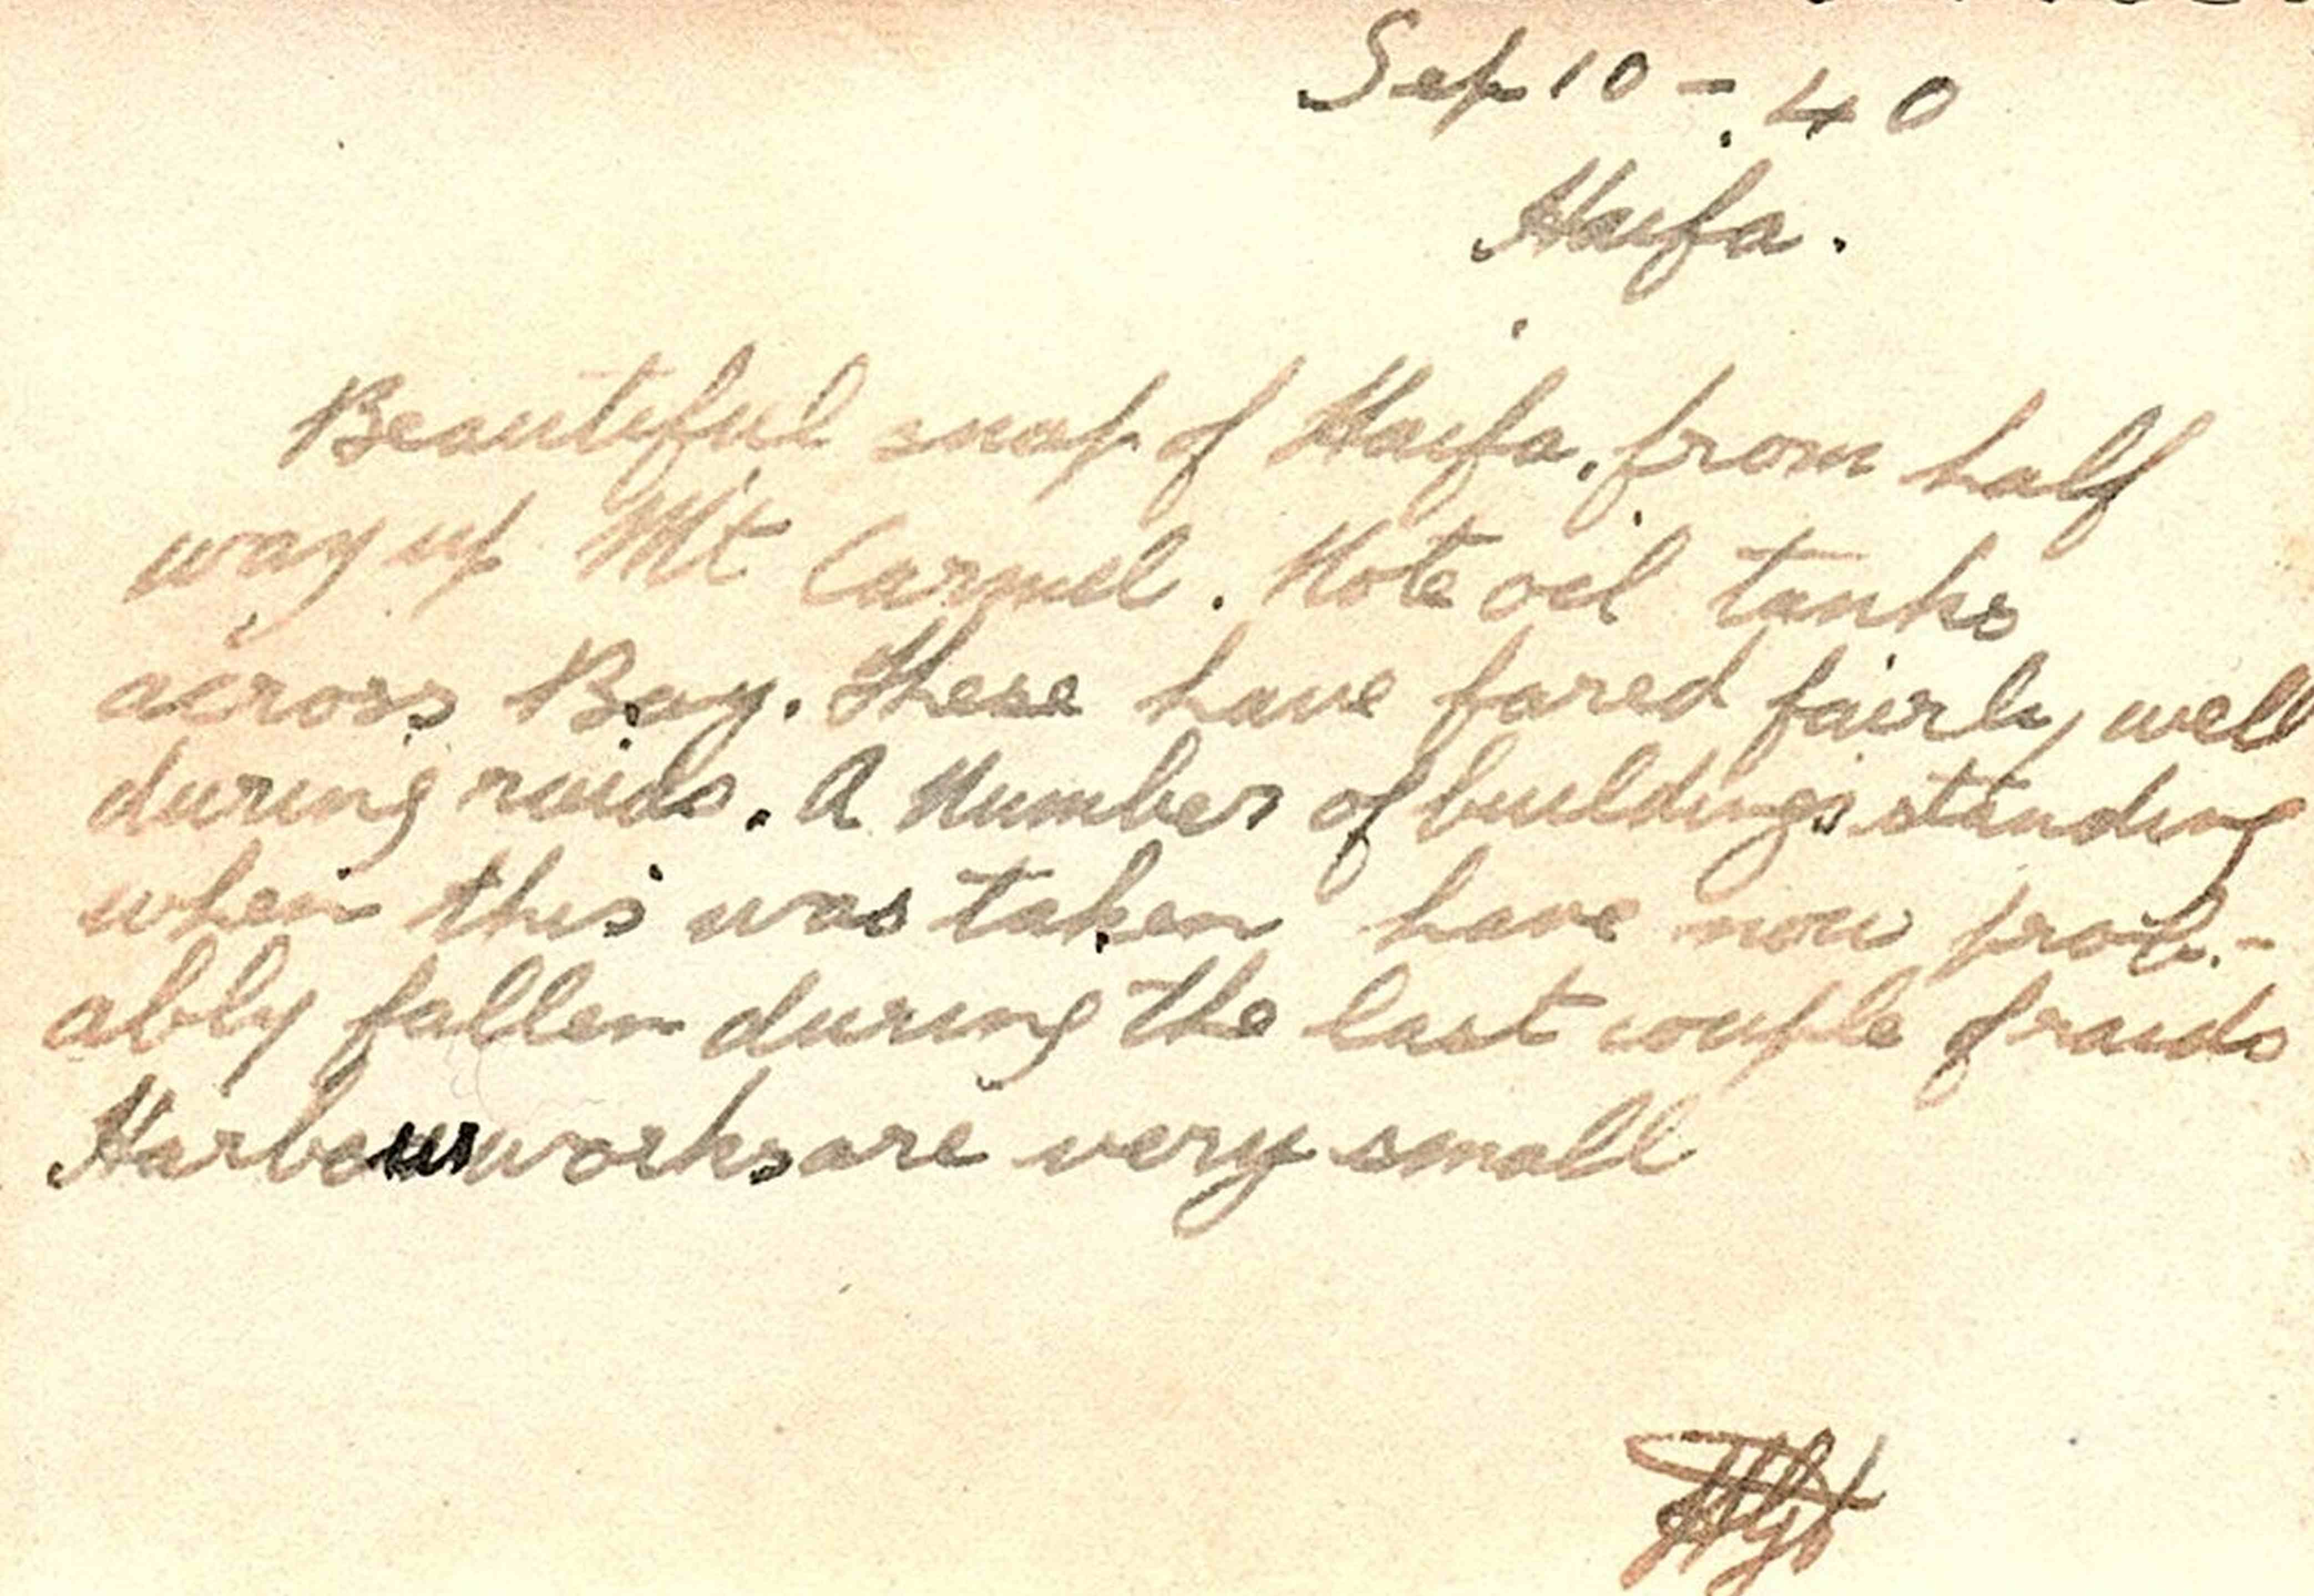 Sep 10 - 40
Haifa.
Beautiful snap of Haifa, from half
way up Mt Carmel. Note oil tanks
across Bay. These have fared fairly well
during raids. A Number of buildings standing
when this was taken have now prob-
ably fallen during the last couple of raids
Harbour works are very small